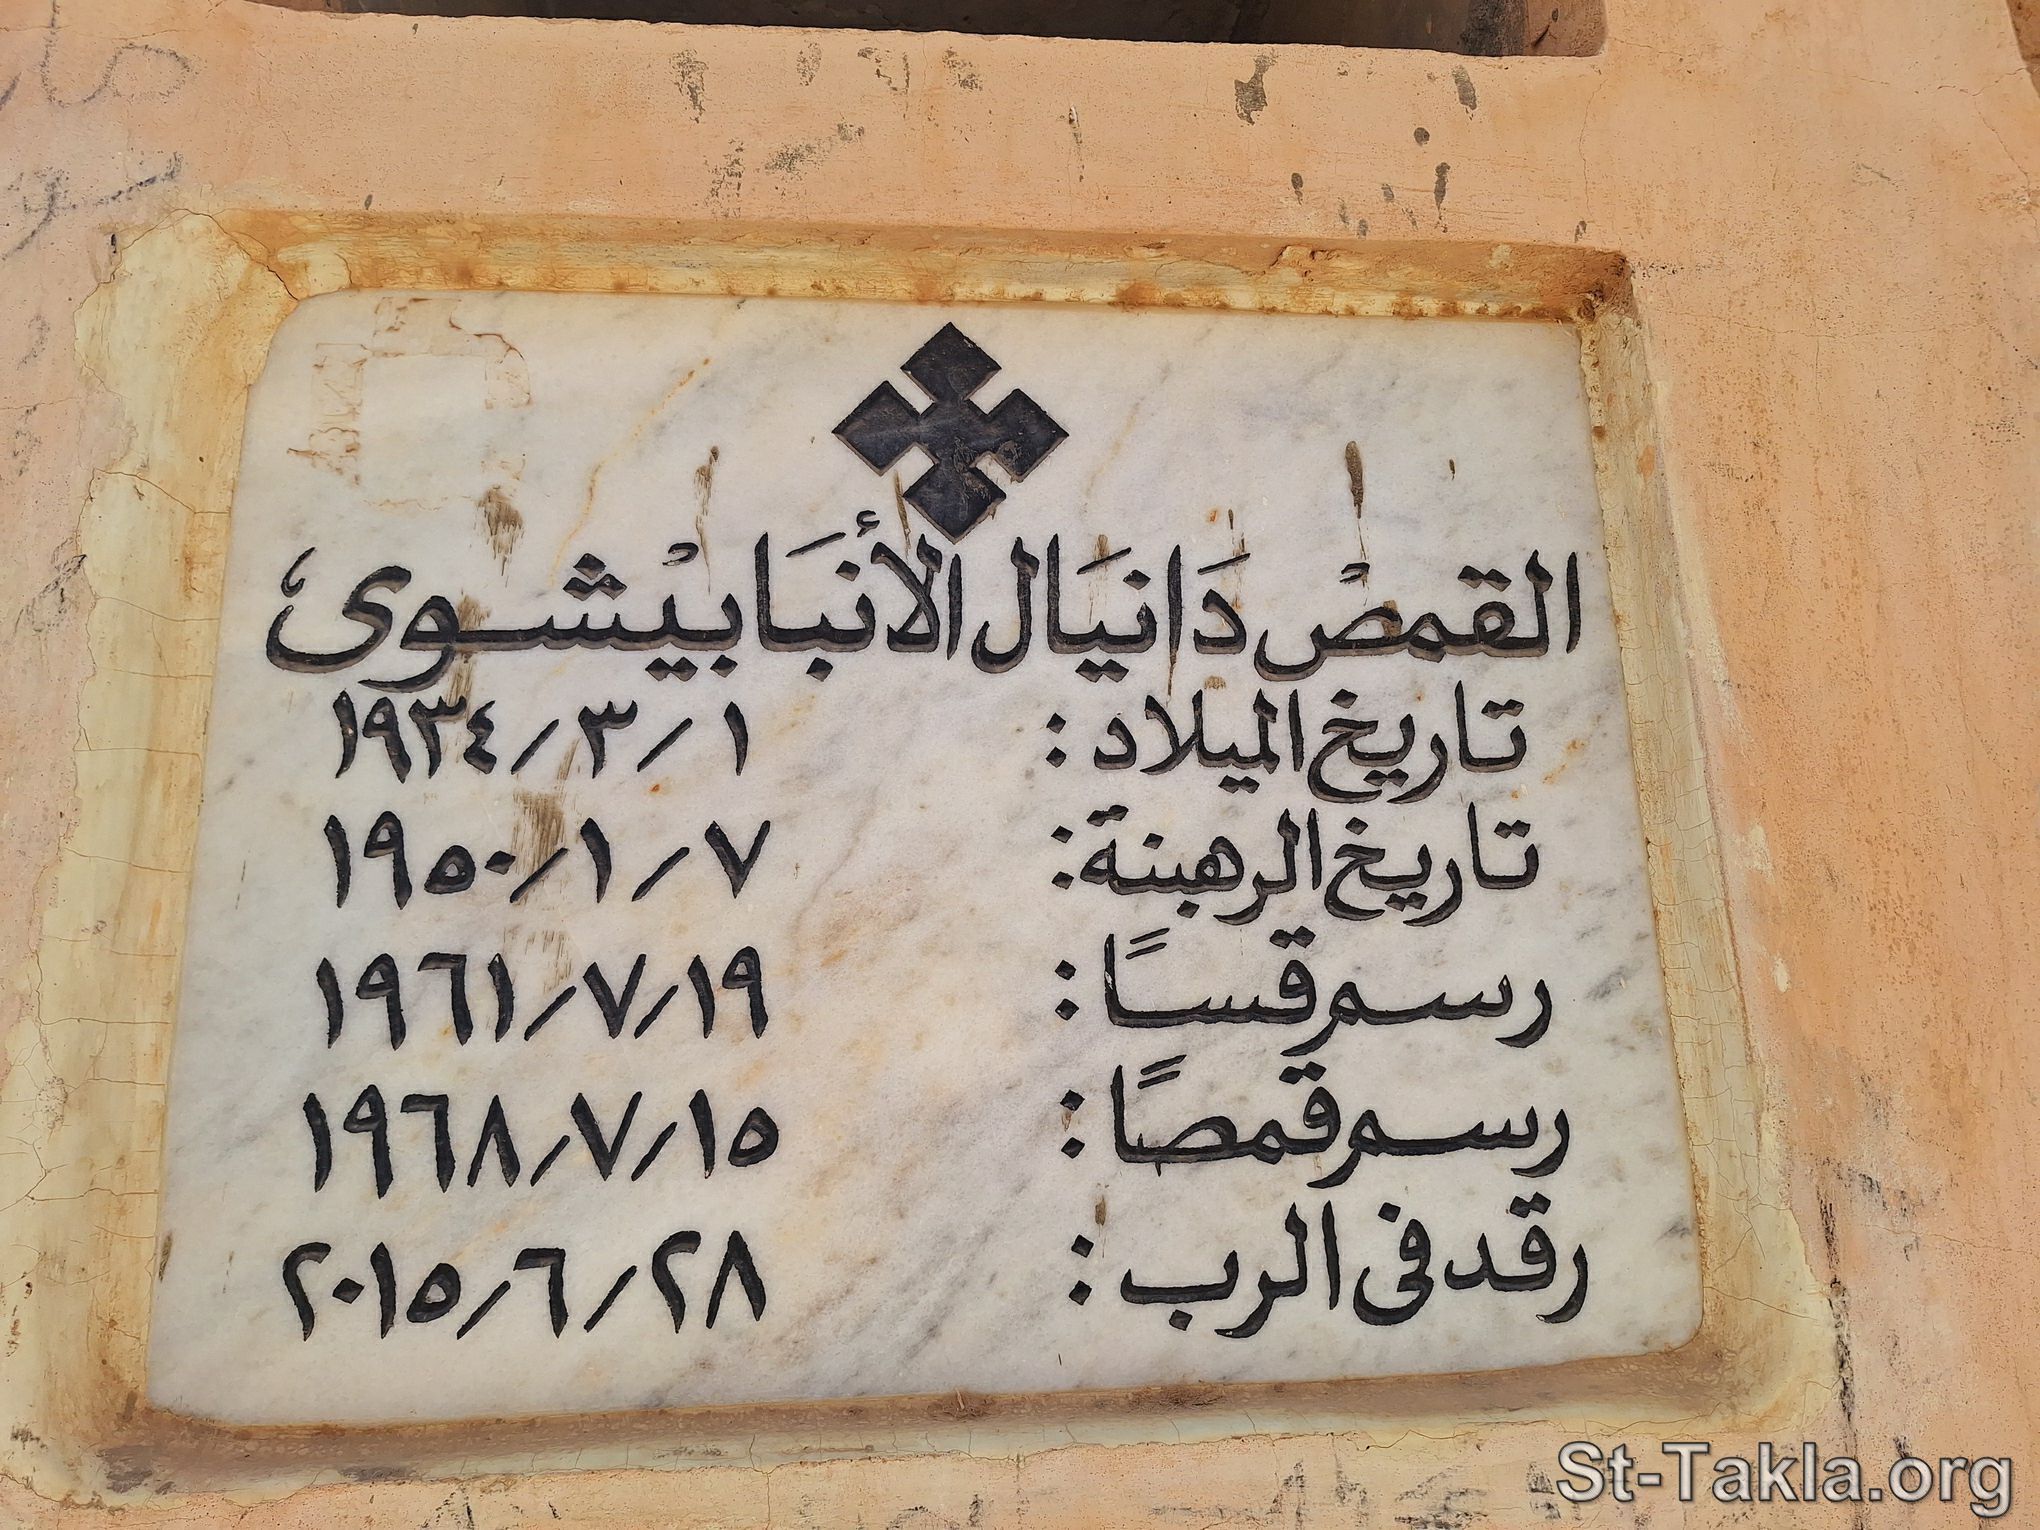 القمصْ دَانيَال الأنبَا بيْشوى
تاريخ الميلاد : ١ / ٣ / ١٩٣٤
تاريخ الرهبنة : ٧ / ١ / ١٩٥٠
رسم قسًا : ١٩ / ٧ / ١٩٦١
رسم قمصًا : ١٥ / ٧ / ١٩٦٨
رقد فى الرب : ٢٨ / ٦ / ٢٠١٥
St-Takla.org